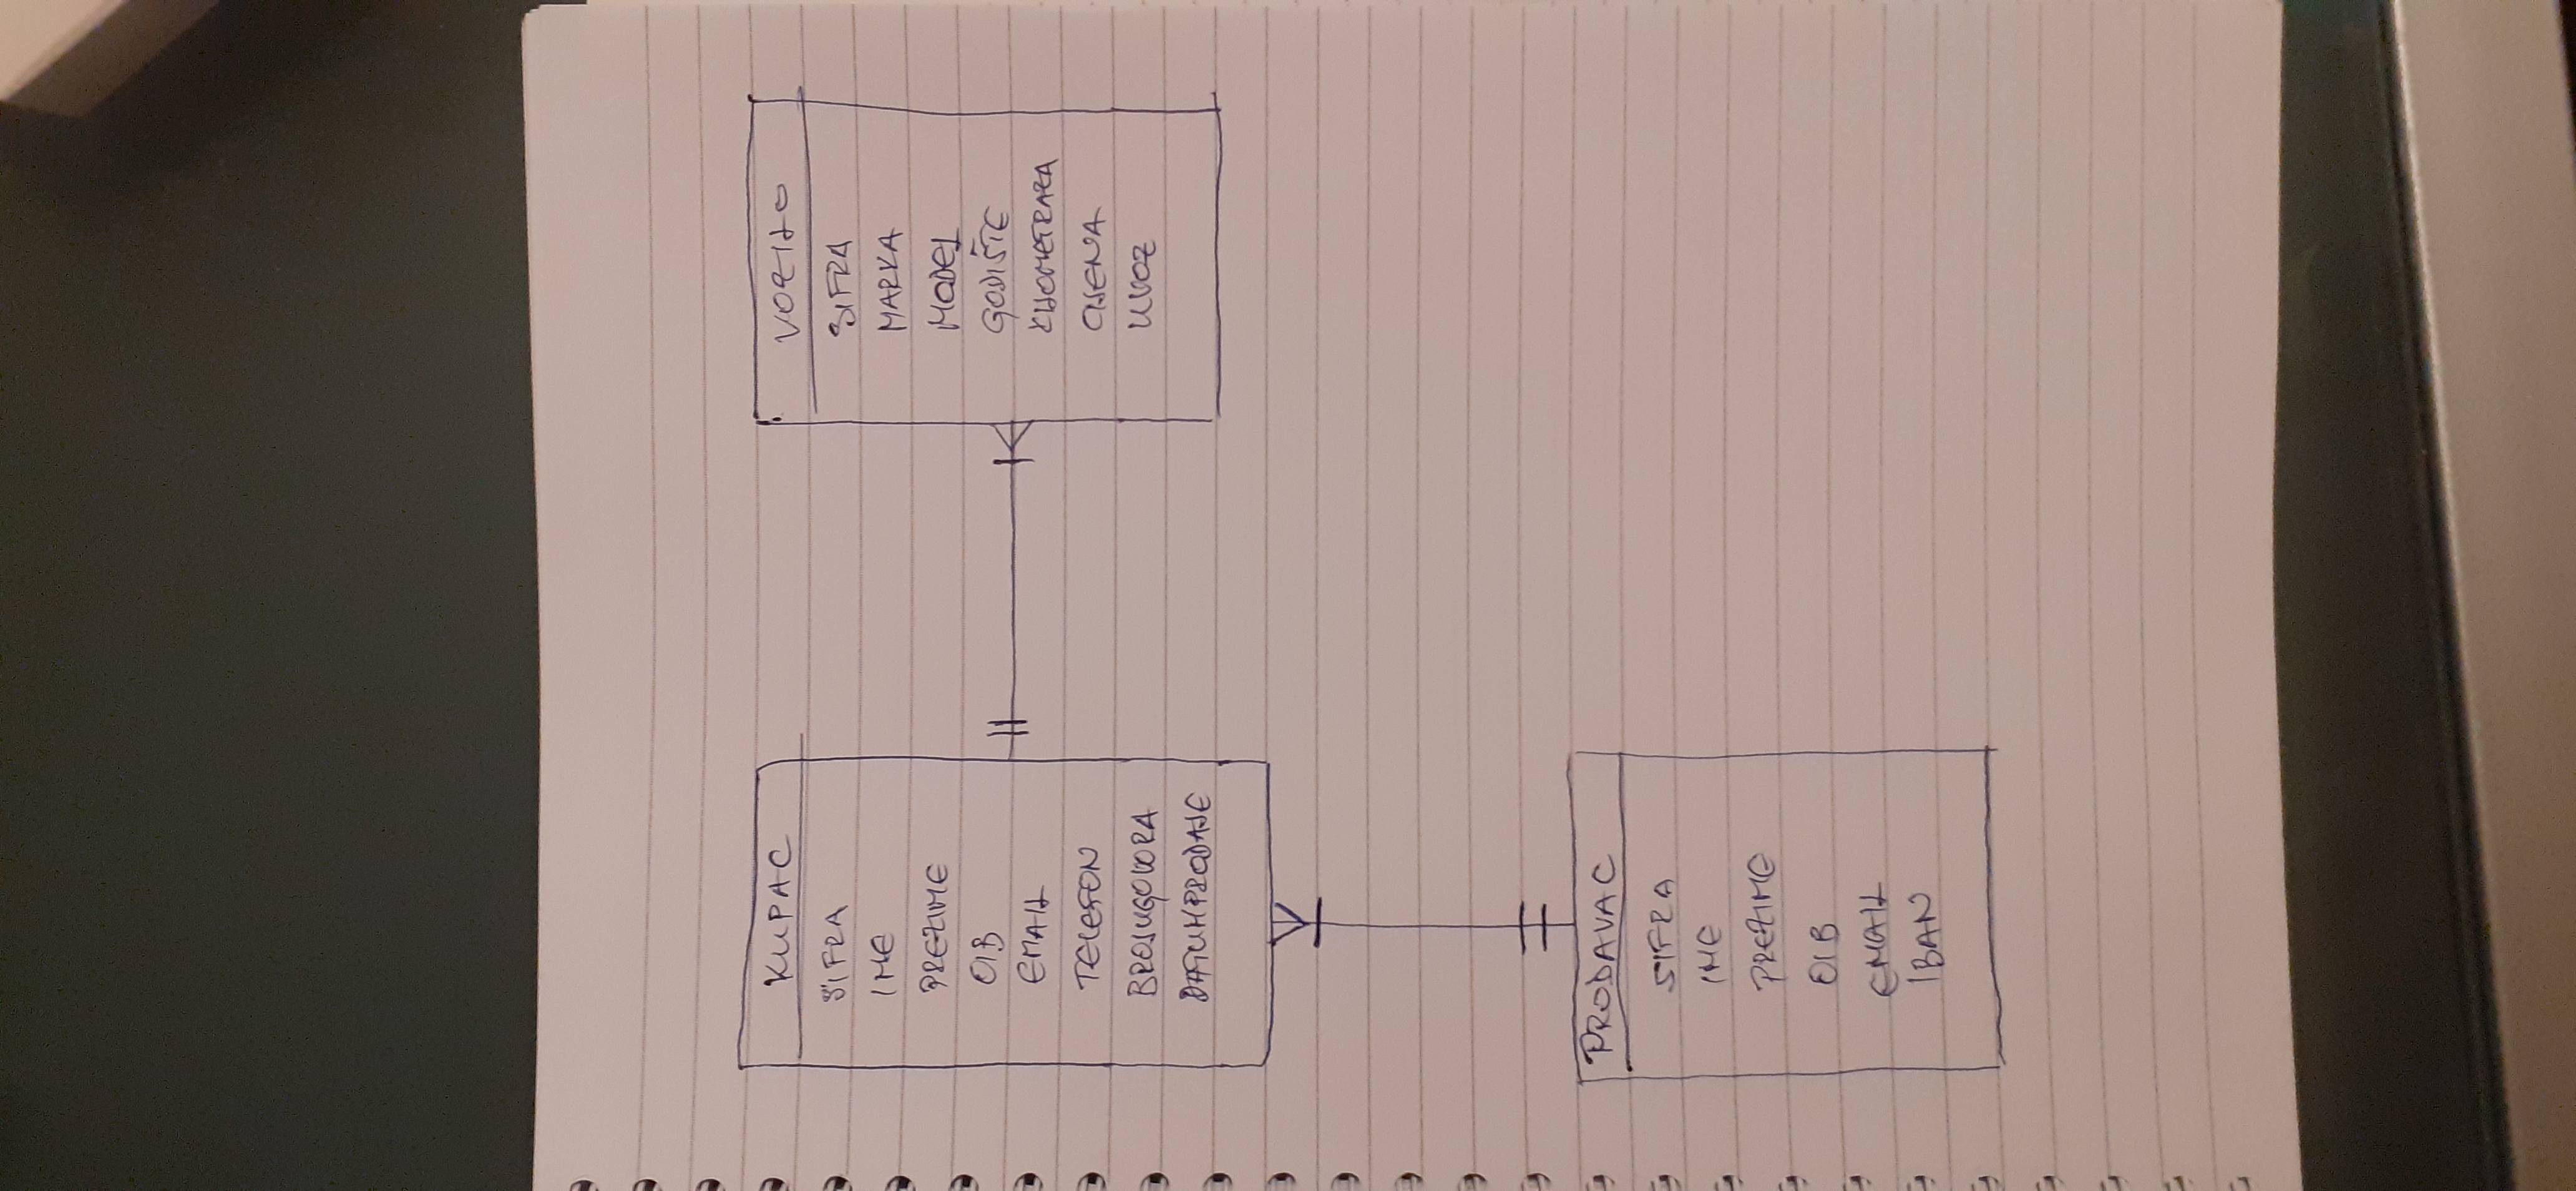 KUPAC
SIFRA
IME
PREZIME
OIB
EMAIL
TELEFON
BROJUGOVORA
DATUMPRODAJE
VOZILO
SIFRA
MARKA
MODEL
GODIŠTE
KILOMETRAZA
CIJENA
UVOZ
PRODAVAC
SIFRA
IME
PREZIME
OIB
EMAIL
IBAN